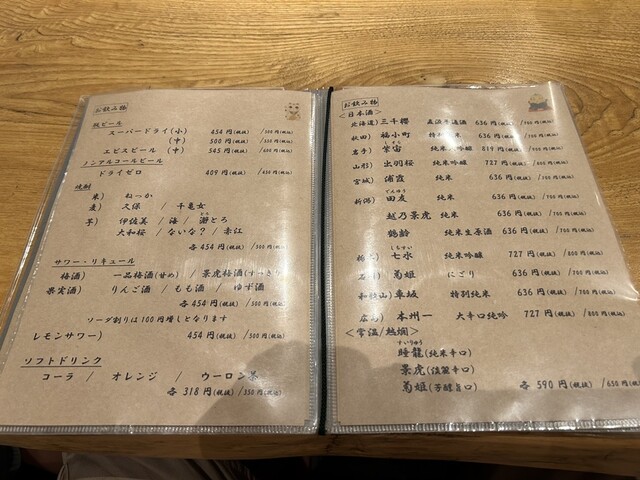 お飲み物
瓶ビール
スーパードライ(小) 454円(税抜)/500円(税込)
(中) 500円(税抜)/550円(税込)
ヱビスビール (中) 545円(税抜)/600円(税込)
ノンアルコールビール
ドライゼロ 409円(税抜)/450円(税込)
焼酎
米) ねっか
麦) 久保 / 千亀女
芋) 伊佐美 / 海 / 瀞とろ
大和桜 / ないな? / 赤江
各454円(税抜)/500円(税込)
サワー・リキュール
梅酒) 一品梅酒(甘め) / 景虎梅酒(すっきり)
果実酒) りんご酒 / もも酒 / ゆず酒
各454円(税抜)/500円(税込)
ソーダ割りは100円増しとなります
レモンサワー) 454円(税抜)/500円(税込)
ソフトドリンク
コーラ / オレンジ / ウーロン茶
各318円(税抜)/350円(税込)
お飲み物
<日本酒>
北海道) 三千櫻 636円(税抜)/700円(税込)
秋田) 福小町 特別純米 636円(税抜)/700円(税込)
岩手) 紫宙 純米吟醸 819円(税抜)/900円(税込)
山形) 出羽桜 純米吟醸 727円(税抜)/800円(税込)
宮城) 浦霞 純米 636円(税抜)/700円(税込)
でんゆう
新潟) 田友 純米 636円(税抜)/700円(税込)
越乃景虎 純米 636円(税抜)/700円(税込)
鶴齢 純米生原酒 636円(税抜)/700円(税込)
しちすい
栃木) 七水 純米吟醸 727円(税抜)/800円(税込)
石川) 菊姫 にごり 636円(税抜)/700円(税込)
和歌山) 車坂 特別純米 636円(税抜)/700円(税込)
広島) 本州一 大辛口純吟 727円(税抜)/800円(税込)
<常温/熱燗>
すいりゅう
睡龍(純米辛口)
景虎(淡麗辛口)
菊姫(芳醇旨口) 各590円(税抜)/650円(税込)